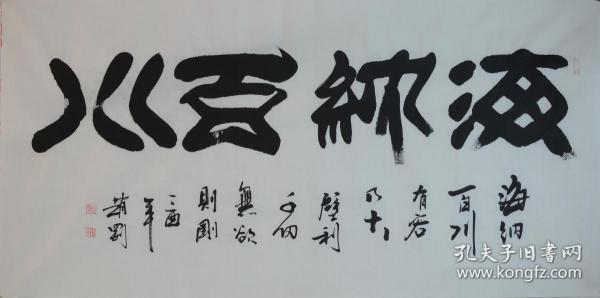 海納百川
海纳
百川
有容
乃大
壁利
千仞
無欲
則剛
酉
年
孔夫子旧书网
www.kongfz.com